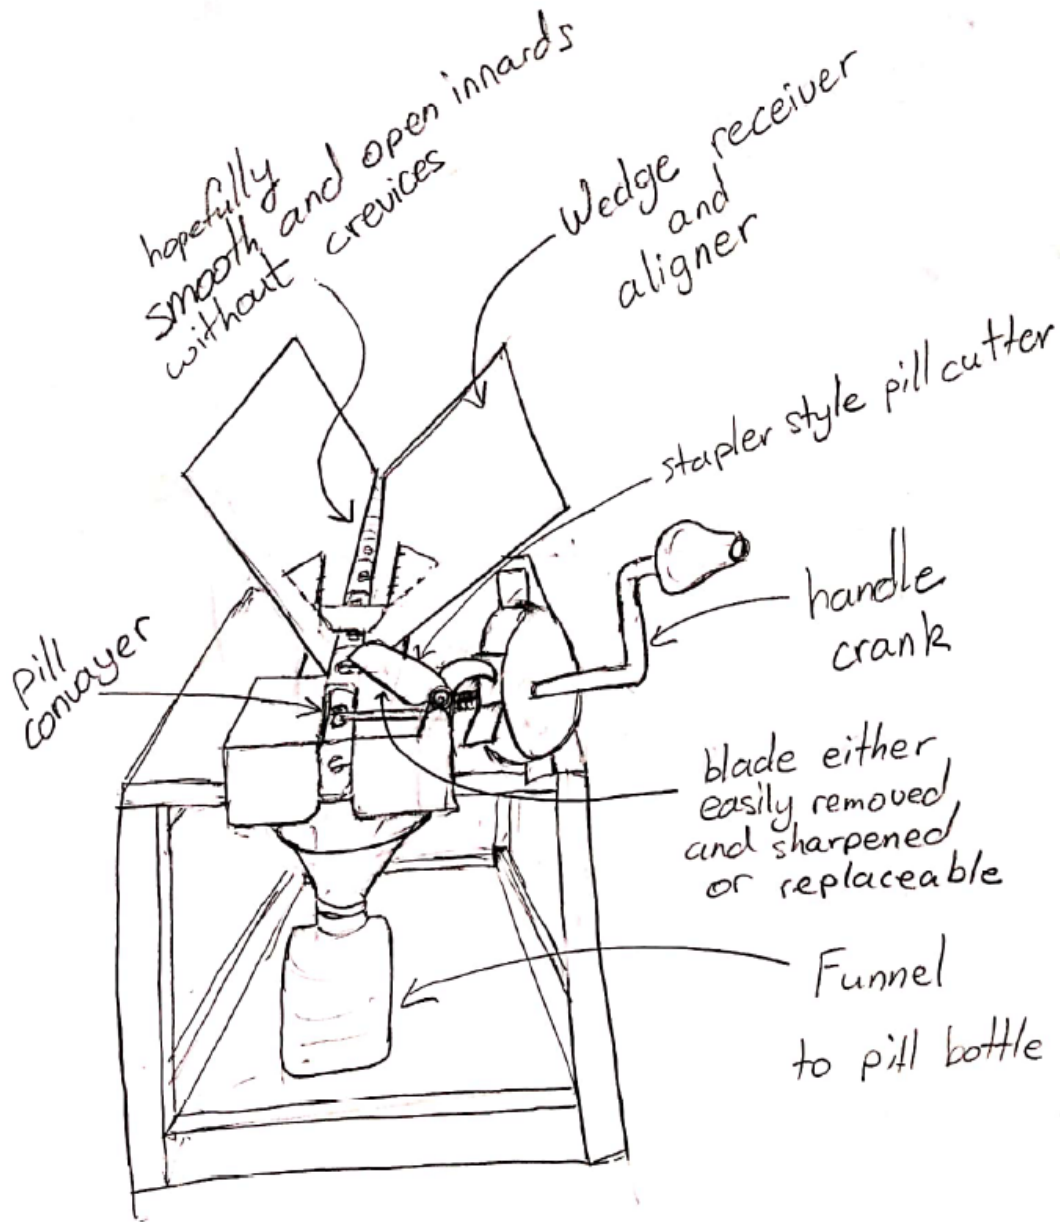 hopefully
smooth and open innards
without crevices
Wedge receiver
and
aligner
stapler style pill cutter
handle
crank
pill
convayer
blade either
easily removed
and sharpened
or replaceable
Funnel
to pill bottle